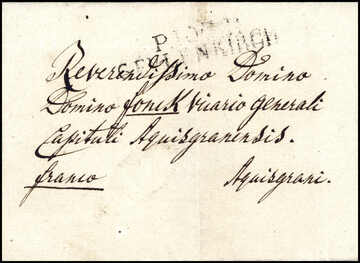 Reverendissimo Domino
Domino fonck Vicario Generali
Capituli Aquisgranensis.
franco Aquisgrani.